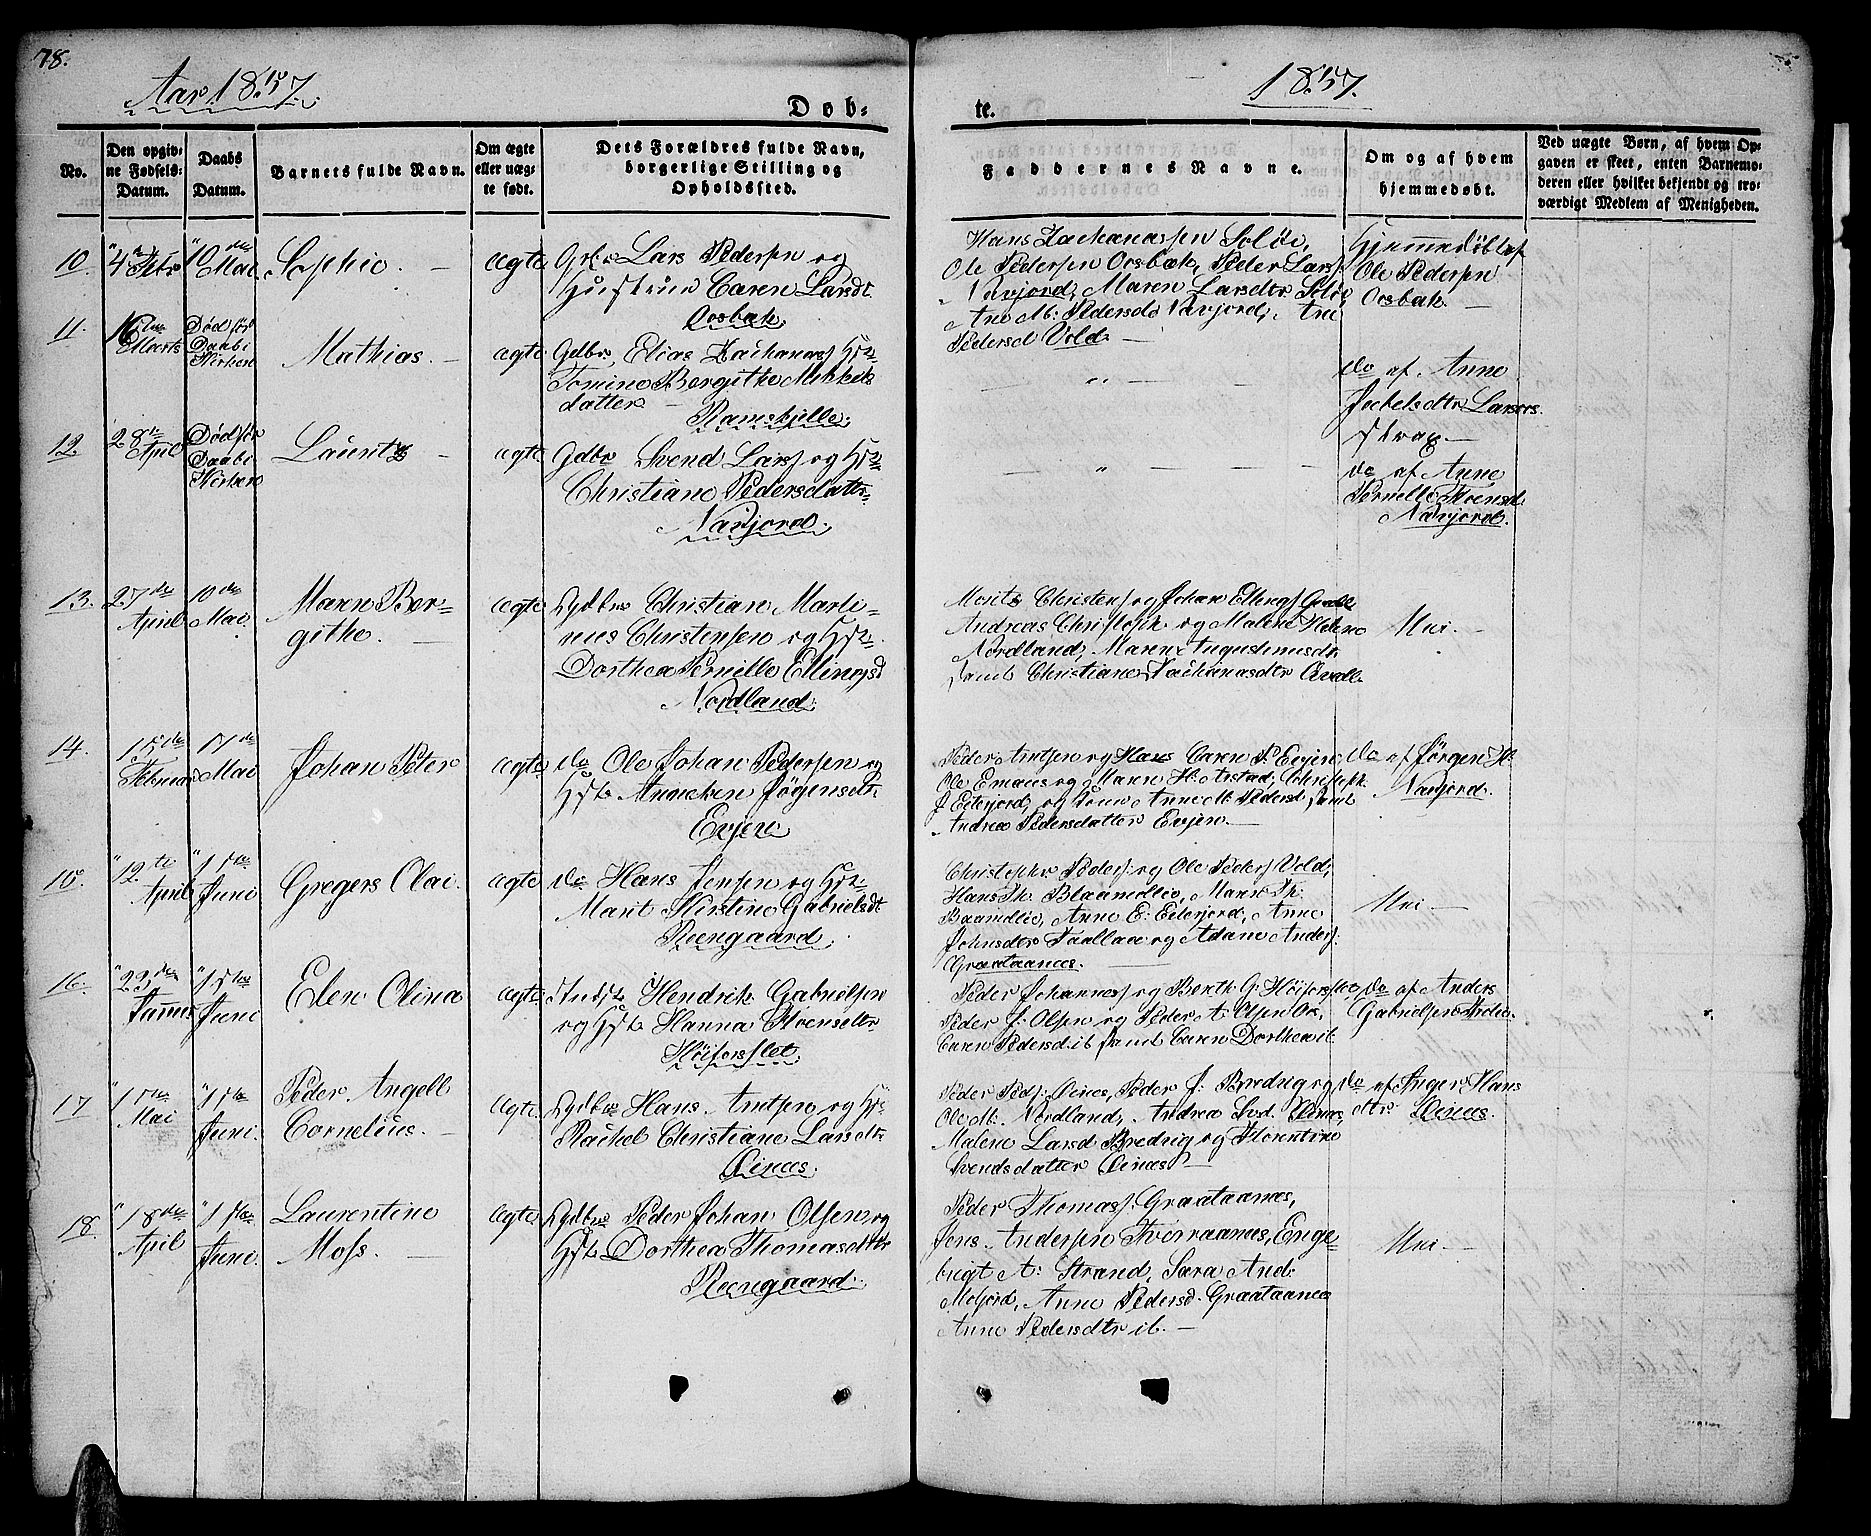 78.
Aar 1857.
Døb-
te.
1857.
No.
Den opgiv-
ne Fødsels-
Datum.
Daabs
Datum.
Barnets fulde Navn.
Om ægte
eller uæg-
te født.
Dets Forældres fulde Navn,
borgerlige Stilling og
Opholdssted.
Faddernes Navne.
Om og af hvem
hjemmedøbt.
Ved uægte Børn, af hvem Op-
gaven er skeet, enten Barnemo-
deren eller hvilket bekjendt og tro-
værdigt Medlem af Menigheden.
10.
4de Febr
10de Mai
Sophie.
ægte
Lars Pedersen og
Hustrue Caren Larsdt
Oosbæk.
Hans Zachariassen Soløe,
Ole Pedersen Oosbæk, Peder Lars
Navjord, Maren Larsdtr Soløe,
Ane M: Pedersd Navjord, Ane
Pedersd Vold
Hjemmedøbt af
Ole Pedersen
Oosbæk.
11.
16de
Marts
Død før
Daab i
Kirken
Mathias.
ægte
Gdbr. Elias Zachariass Hst
Tomine Bergithe Mikkels
datter
Ramskjelle.
"
do af Anne
Jakelsdtr Larsos
strax
12.
28de
April
Død før
Daab i
Kirken
Lauritz
ægte
Gdbr Svend Lars og Hst
Christiane Pedersdatter
Navjord.
"
do af Anne
Pernille
Navjord.
13.
27de
April
10de
Mai.
Maren Ber-
githe.
ægte
Gdbr Christian Marti-
nus Christensen og Hst.
Dorthea Pernille Ellingsd
Nordland.
Morits Christens og Johan Ellings
Andreas Christoph. og Malene Helene
Nordland, Maren Augustinusdtr
samt Christiane Zachariasdtr
Nei.
14.
15de
Februar
17de
Mai
Johan Peter
ægte
do Ole Johan Pedersen og
Hst Anneken Jørgensdtr
Evjen
Peder Antsen og Hans Caren P. Evjen
Ole Emaus og Maren H. Arstad, Christoph
J Eiterjord, og Anne M: Pedersd samt
Andrea Pedersdatter Evjen.
do af Jørgen H.
Navjord.
15.
12te
April
1ste
Juni
Gregers Olai.
ægte
do Hans Jensen og Hst
Marit Kirstine Gabrielsdt
Reengaard
Christopher Peders og Ole Peders Vold,
Hans Th. Blaamolie, Maren Th:
Baamolie, Anne E: Eiterjord, Anne
Johnsdtr og Adane Anders
Graataanæs.
Nei.
16.
23de
Januar
1ste
Juni
Elen Olina
ægte
Indst. Hendrik Gabrielsen
og Hst Hanna
Høiforslet
Peder Johannes og Berth G. Høiforslet,
Peder J. Olsen og Peder A. Olsen
Caren Pedersd. ib samt Caren Dorthea ib
do af Anders
Gabrielsen
17
1ste
Mai
1ste
Juni.
Peder Angell
Cornelius.
ægte.
Gdbr Hans Antsen og Hst
Rachel Christiane Larsdtr
Øinæs.
Peder Peds: Øinæs, Peder J. Bredvig og
Ole M. Nordland, Andrea Svd. Øinæs,
Malene Larsd Bredvig og Florentine
Svendsdatter Øinæs
do af Inger Hans
dtr Øinæs.
18.
18de
April
1ste
Juni.
Laurentine
Moss.
ægte
Gdbr Peder Johan Olsen og
Hst Dorthea Thomasdtr
Reengaard.
Peder Thomass. Graataanæs,
Jens Andersen Tvorraanæs, Enge-
brigt A: Strand, Sara And:
Mofjord, Anne Pedersd. Graataanæs
Anne Pedersdtr ib.
Nei.